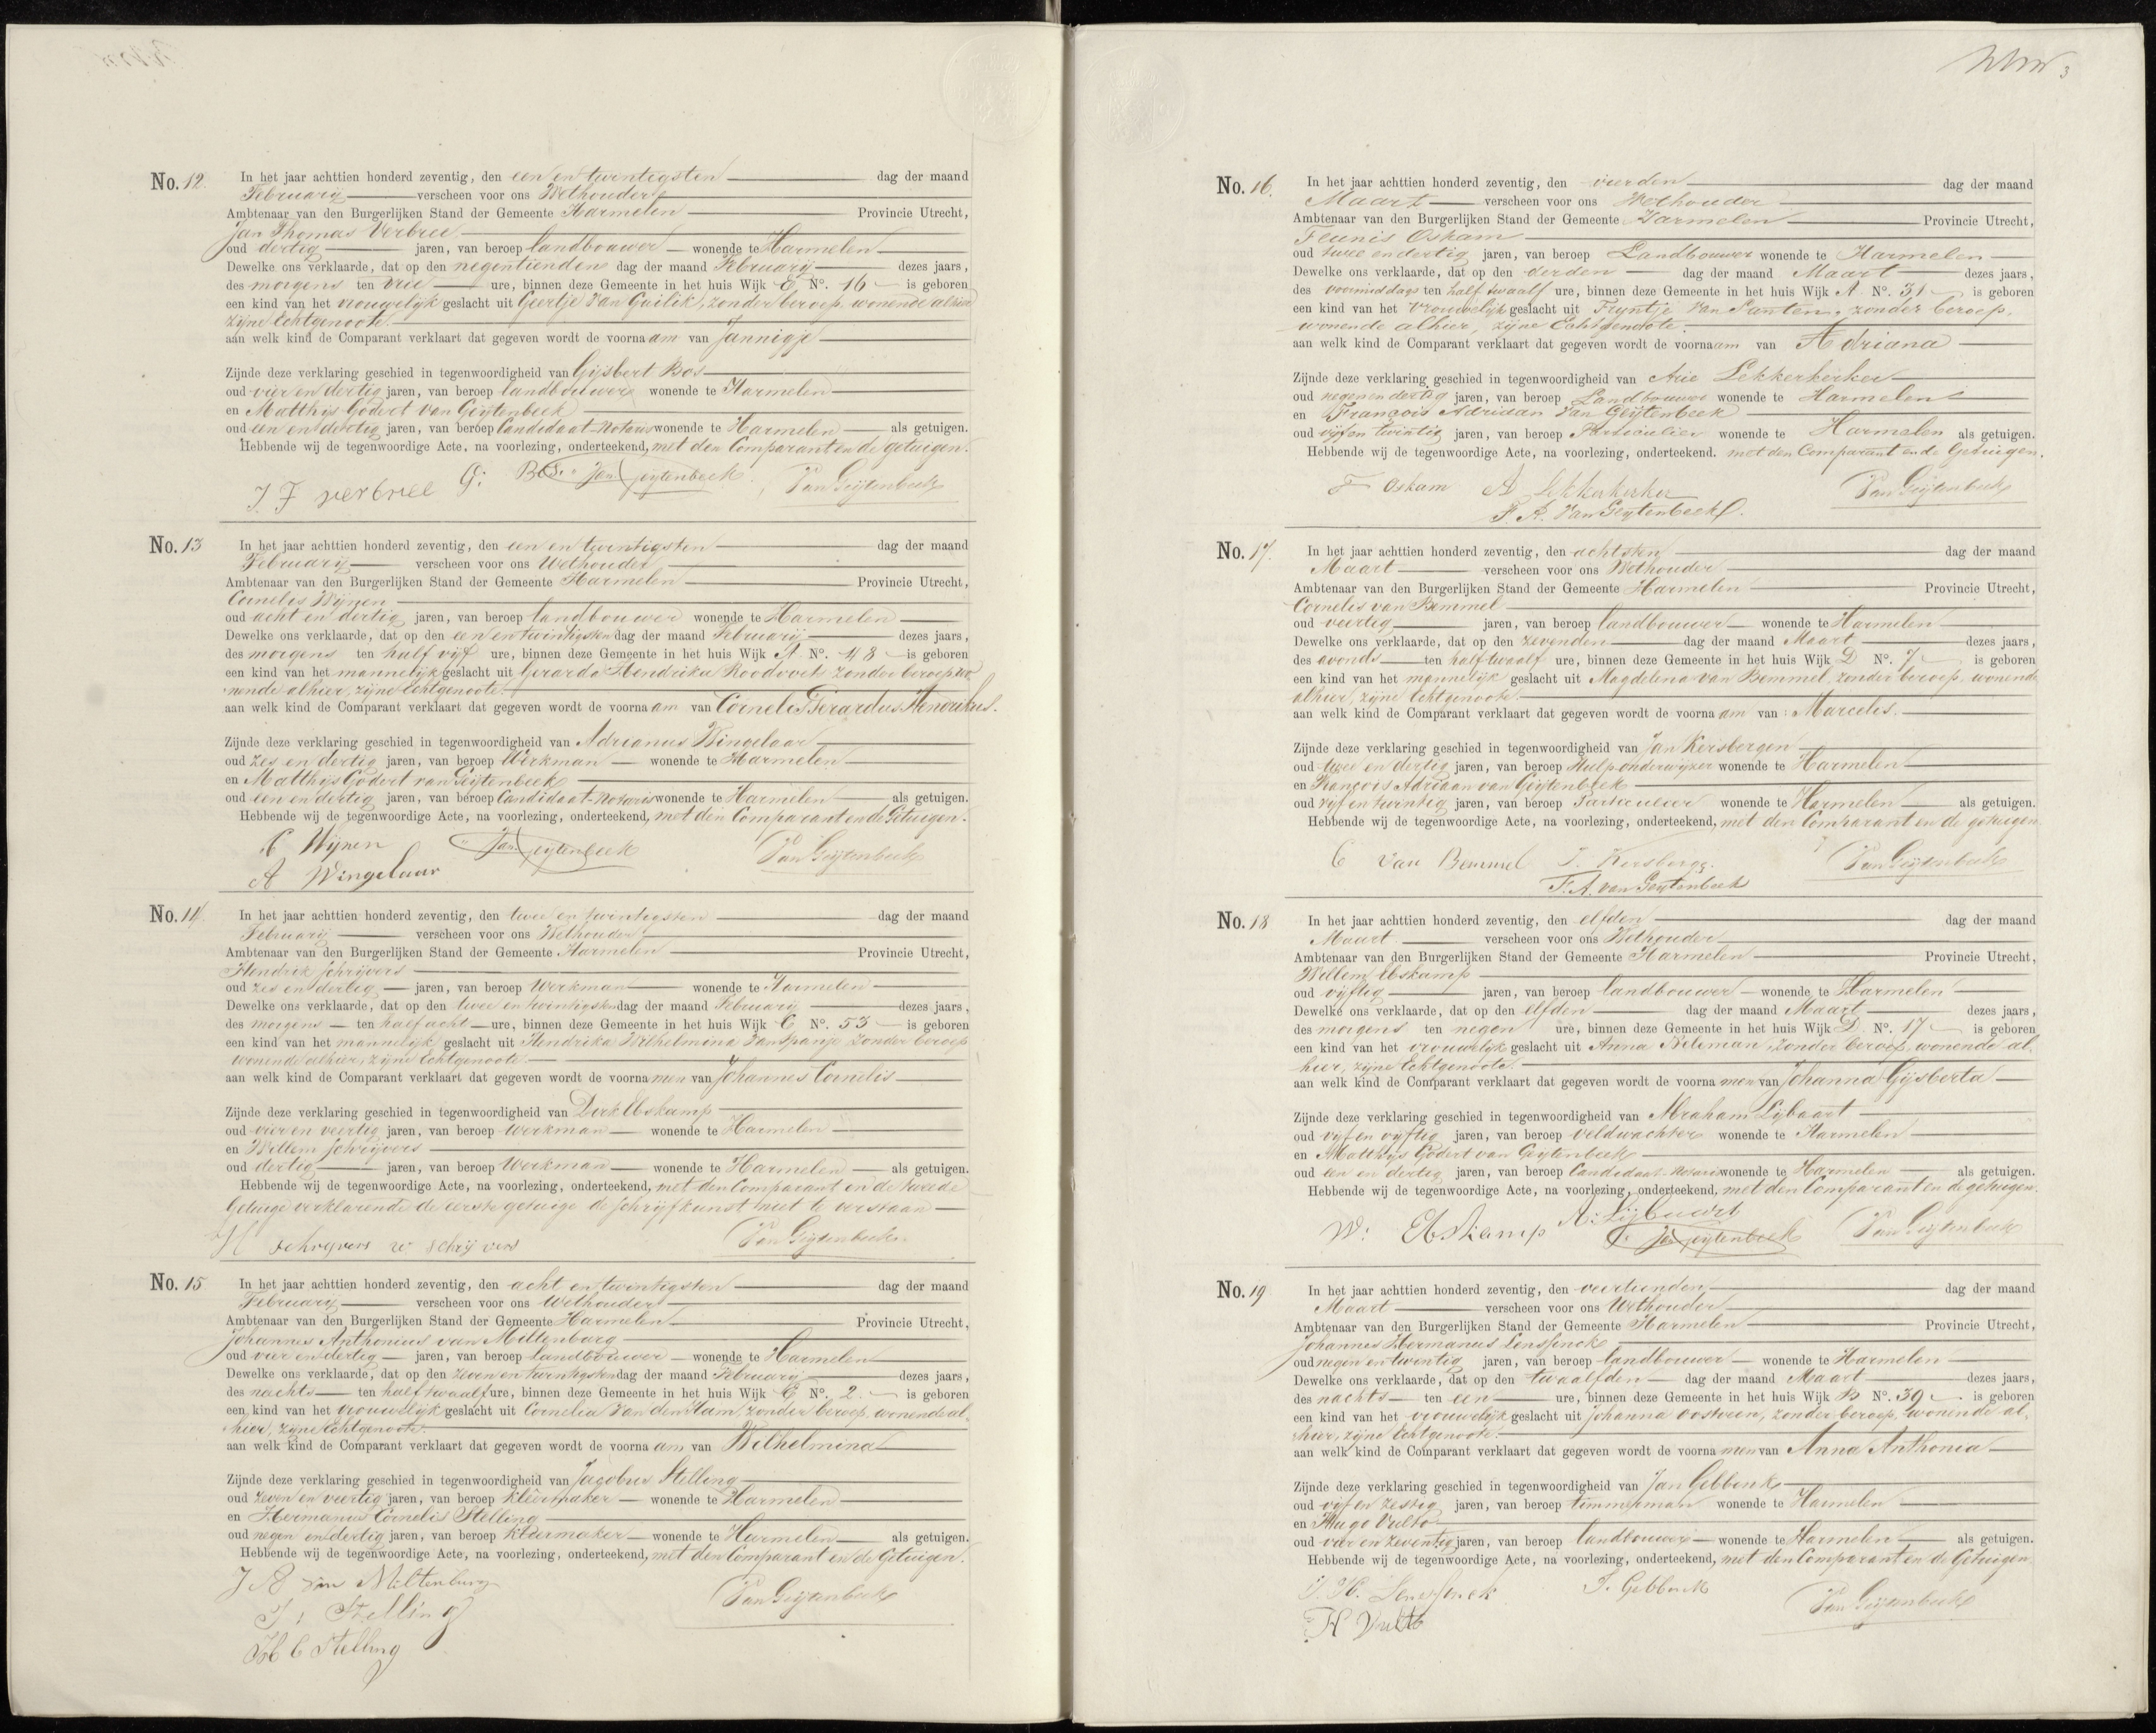 3
No. 12. In het jaar achttien honderd zeventig, den een en twintigsten dag der maand
Februarij verscheen voor ons Wethouder
Ambtenaar van den Burgerlijken Stand der Gemeente Harmelen Provincie Utrecht,
Jan Thomas Verbree
oud dertig jaren, van beroep landbouwer wonende te Harmelen
Dewelke ons verklaarde, dat op den negentienden dag der maand Februarij dezes jaars,
des morgens ten drie ure, binnen deze Gemeente in het huis Wijk E No. 16 is geboren
een kind van het vrouwelijk geslacht uit Geertje van Guilik, zonder beroep, wonende alhier
zijne Echtgenoote.
aan welk kind de Comparant verklaart dat gegeven wordt de voornaam van Jannigje
Zijnde deze verklaring geschied in tegenwoordigheid van Gijsbert Bos
oud vier en dertig jaren, van beroep landbouwer wonende te Harmelen
en Matthijs Godert van Geijtenbeek
oud een en dertig jaren, van beroep Candidaat-Notaris wonende te Harmelen als getuigen.
Hebbende wij de tegenwoordige Acte, na voorlezing, onderteekend, met den Comparant en de getuigen.
J. T verbree G: Bos. van Geijtenbeek. Van Geijtenbeek
No. 13 In het jaar achttien honderd zeventig, den een en twintigsten dag der maand
Februarij verscheen voor ons Wethouder
Ambtenaar van den Burgerlijken Stand der Gemeente Harmelen Provincie Utrecht,
Cornelis Wijnen
oud acht en dertig jaren, van beroep landbouwer wonende te Harmelen
Dewelke ons verklaarde, dat op den een en twintigsten dag der maand Februarij dezes jaars,
des morgens ten half vijf ure, binnen deze Gemeente in het huis Wijk A No. 48 is geboren
een kind van het mannelijk geslacht uit Gerarda Hendrika Roodvoets zonder beroep wo-
nende alhier, zijne Echtgenoote.
aan welk kind de Comparant verklaart dat gegeven wordt de voornaam van Cornelis Gerardus Hendrikus.
Zijnde deze verklaring geschied in tegenwoordigheid van Adrianus Wingelaar
oud zes en dertig jaren, van beroep Werkman wonende te Harmelen
en Matthijs Godert van Geijtenbeek
oud een en dertig jaren, van beroep Candidaat-Notaris wonende te Harmelen als getuigen.
Hebbende wij de tegenwoordige Acte, na voorlezing, onderteekend, met den Comparant en de Getuigen.
C Wijnen van Geijtenbeek Van Geijtenbeek
A Wingelaar
No. 14. In het jaar achttien honderd zeventig, den twee en twintigsten dag der maand
Februarij verscheen voor ons Wethouder
Ambtenaar van den Burgerlijken Stand der Gemeente Harmelen Provincie Utrecht,
Hendrik Schrijvers
oud zes en dertig jaren, van beroep Werkman wonende te Harmelen
Dewelke ons verklaarde, dat op den twee en twintigsten dag der maand Februarij dezes jaars,
des morgens ten half acht ure, binnen deze Gemeente in het huis Wijk C No. 53 is geboren
een kind van het mannelijk geslacht uit Hendrika Wilhelmina van Spanje zonder beroep
wonende alhier, zijne Echtgenoote.
aan welk kind de Comparant verklaart dat gegeven wordt de voornamen van Johannes Cornelis
Zijnde deze verklaring geschied in tegenwoordigheid van Dirk Ebskamp
oud vier en veertig jaren, van beroep werkman wonende te Harmelen
en Willem Schrijvers
oud dertig jaren, van beroep Werkman wonende te Harmelen als getuigen.
Hebbende wij de tegenwoordige Acte, na voorlezing, onderteekend, met den Comparant en de tweede
Getuige verklarende de eerste getuige de schrijfkunst niet te verstaan
H schrijvers w schrijvers Van Geijtenbeek
No. 15 In het jaar achttien honderd zeventig, den acht en twintigsten dag der maand
Februarij verscheen voor ons Wethouder
Ambtenaar van den Burgerlijken Stand der Gemeente Harmelen Provincie Utrecht,
Johannes Anthonius van Miltenburg
oud vier en dertig jaren, van beroep Landbouwer wonende te Harmelen
Dewelke ons verklaarde, dat op den zeven en twintigsten dag der maand Februarij dezes jaars,
des nachts ten half twaalf ure, binnen deze Gemeente in het huis Wijk C No. 2. is geboren
een kind van het vrouwelijk geslacht uit Cornelia van den Ham, zonder beroep, wonende al-
hier, zijne Echtgenoote.
aan welk kind de Comparant verklaart dat gegeven wordt de voornaam van Wilhelmina
Zijnde deze verklaring geschied in tegenwoordigheid van Jacobus Stelling
oud zeven en veertig jaren, van beroep kleermaker wonende te Harmelen
en Hermanus Cornelis Stelling
oud negen en dertig jaren, van beroep kleermaker wonende te Harmelen als getuigen.
Hebbende wij de tegenwoordige Acte, na voorlezing, onderteekend, met den Comparant en de Getuigen.
J A van Miltenburg Van Geijtenbeek
J: Stelling
H C Stelling
No. 16. In het jaar achttien honderd zeventig, den vierden dag der maand
Maart verscheen voor ons Wethouder
Ambtenaar van den Burgerlijken Stand der Gemeente Harmelen Provincie Utrecht,
Teunis Oskam
oud twee en dertig jaren, van beroep Landbouwer wonende te Harmelen
Dewelke ons verklaarde, dat op den derden dag der maand Maart dezes jaars,
des voormiddags ten half twaalf ure, binnen deze Gemeente in het huis Wijk A No. 31 is geboren
een kind van het vrouwelijk geslacht uit Fijntje van Santen, zonder beroep,
wonende alhier, zijne Echtgenoote.
aan welk kind de Comparant verklaart dat gegeven wordt de voornaam van Adriana
Zijnde deze verklaring geschied in tegenwoordigheid van Arie Lekkerkerker
oud negen en dertig jaren, van beroep Landbouwer wonende te Harmelen
en François Adriaan van Geijtenbeek
oud vijf en twintig jaren, van beroep Particulier wonende te Harmelen als getuigen.
Hebbende wij de tegenwoordige Acte, na voorlezing, onderteekend. met den Comparant en de Getuigen.
T Oskam A Lekkerkerker Van Geijtenbeek
F. A. van Geijtenbeek.
No. 17. In het jaar achttien honderd zeventig, den achtsten dag der maand
Maart verscheen voor ons Wethouder
Ambtenaar van den Burgerlijken Stand der Gemeente Harmelen Provincie Utrecht,
Cornelis van Bemmel
oud veertig jaren, van beroep landbouwer wonende te Harmelen
Dewelke ons verklaarde, dat op den zevenden dag der maand Maart dezes jaars,
des avonds ten half twaalf ure, binnen deze Gemeente in het huis Wijk D No. 7 is geboren
een kind van het mannelijk geslacht uit Magdelena van Bemmel, zonder beroep, wonende
alhier, zijne Echtgenoote.
aan welk kind de Comparant verklaart dat gegeven wordt de voornaam van Marcelis.
Zijnde deze verklaring geschied in tegenwoordigheid van Jan Kersbergen
oud twee en dertig jaren, van beroep Hulponderwijzer wonende te Harmelen
en François Adriaan van Geijtenbeek
oud vijf en twintig jaren, van beroep Particulier wonende te Harmelen als getuigen.
Hebbende wij de tegenwoordige Acte, na voorlezing, onderteekend, met den Comparant en de getuigen.
C van Bemmel J. Kersbergen Van Geijtenbeek
F. A. van Geijtenbeek
No. 18 In het jaar achttien honderd zeventig, den elfden dag der maand
Maart verscheen voor ons Wethouder
Ambtenaar van den Burgerlijken Stand der Gemeente Harmelen Provincie Utrecht,
Willem Ebskamp
oud vijftig jaren, van beroep landbouwer wonende te Harmelen
Dewelke ons verklaarde, dat op den elfden dag der maand Maart dezes jaars,
des morgens ten negen ure, binnen deze Gemeente in het huis Wijk D. No. 17 is geboren
een kind van het vrouwelijk geslacht uit Anna zonder beroep, wonende al-
hier, zijne Echtgenoote.
aan welk kind de Comparant verklaart dat gegeven wordt de voornamen van Johanna Gijsberta
Zijnde deze verklaring geschied in tegenwoordigheid van Abraham Lijbaart
oud vijf en vijftig jaren, van beroep veldwachter wonende te Harmelen
en Matthijs Godert van Geijtenbeek
oud een en dertig jaren, van beroep Candidaat-Notaris wonende te Harmelen als getuigen.
Hebbende wij de tegenwoordige Acte, na voorlezing, onderteekend, met den Comparant en de getuigen.
W: Ebskamp A: Lijbaart van Geijtenbeek Van Geijtenbeek
No. 19 In het jaar achttien honderd zeventig, den veertienden dag der maand
Maart verscheen voor ons Wethouder
Ambtenaar van den Burgerlijken Stand der Gemeente Harmelen Provincie Utrecht,
Johannes Hermanus Lenssinck
oud negen en twintig jaren, van beroep landbouwer wonende te Harmelen
Dewelke ons verklaarde, dat op den twaalfden dag der maand Maart dezes jaars,
des nachts ten een ure, binnen deze Gemeente in het huis Wijk B No. 39 is geboren
een kind van het vrouwelijk geslacht uit Johanna Oostveen, zonder beroep, wonende al-
hier, zijne Echtgenoote.
aan welk kind de Comparant verklaart dat gegeven wordt de voornamen van Anna Anthonia
Zijnde deze verklaring geschied in tegenwoordigheid van Jan Gebbink
oud vijf en zestig jaren, van beroep timmerman wonende te Harmelen
en Hugo Vulto
oud vier en zeventig jaren, van beroep landbouwer wonende te Harmelen als getuigen.
Hebbende wij de tegenwoordige Acte, na voorlezing, onderteekend, met den Comparant en de Getuigen.
J. H. Lenssinck J. Gebbink Van Geijtenbeek
H Vulto